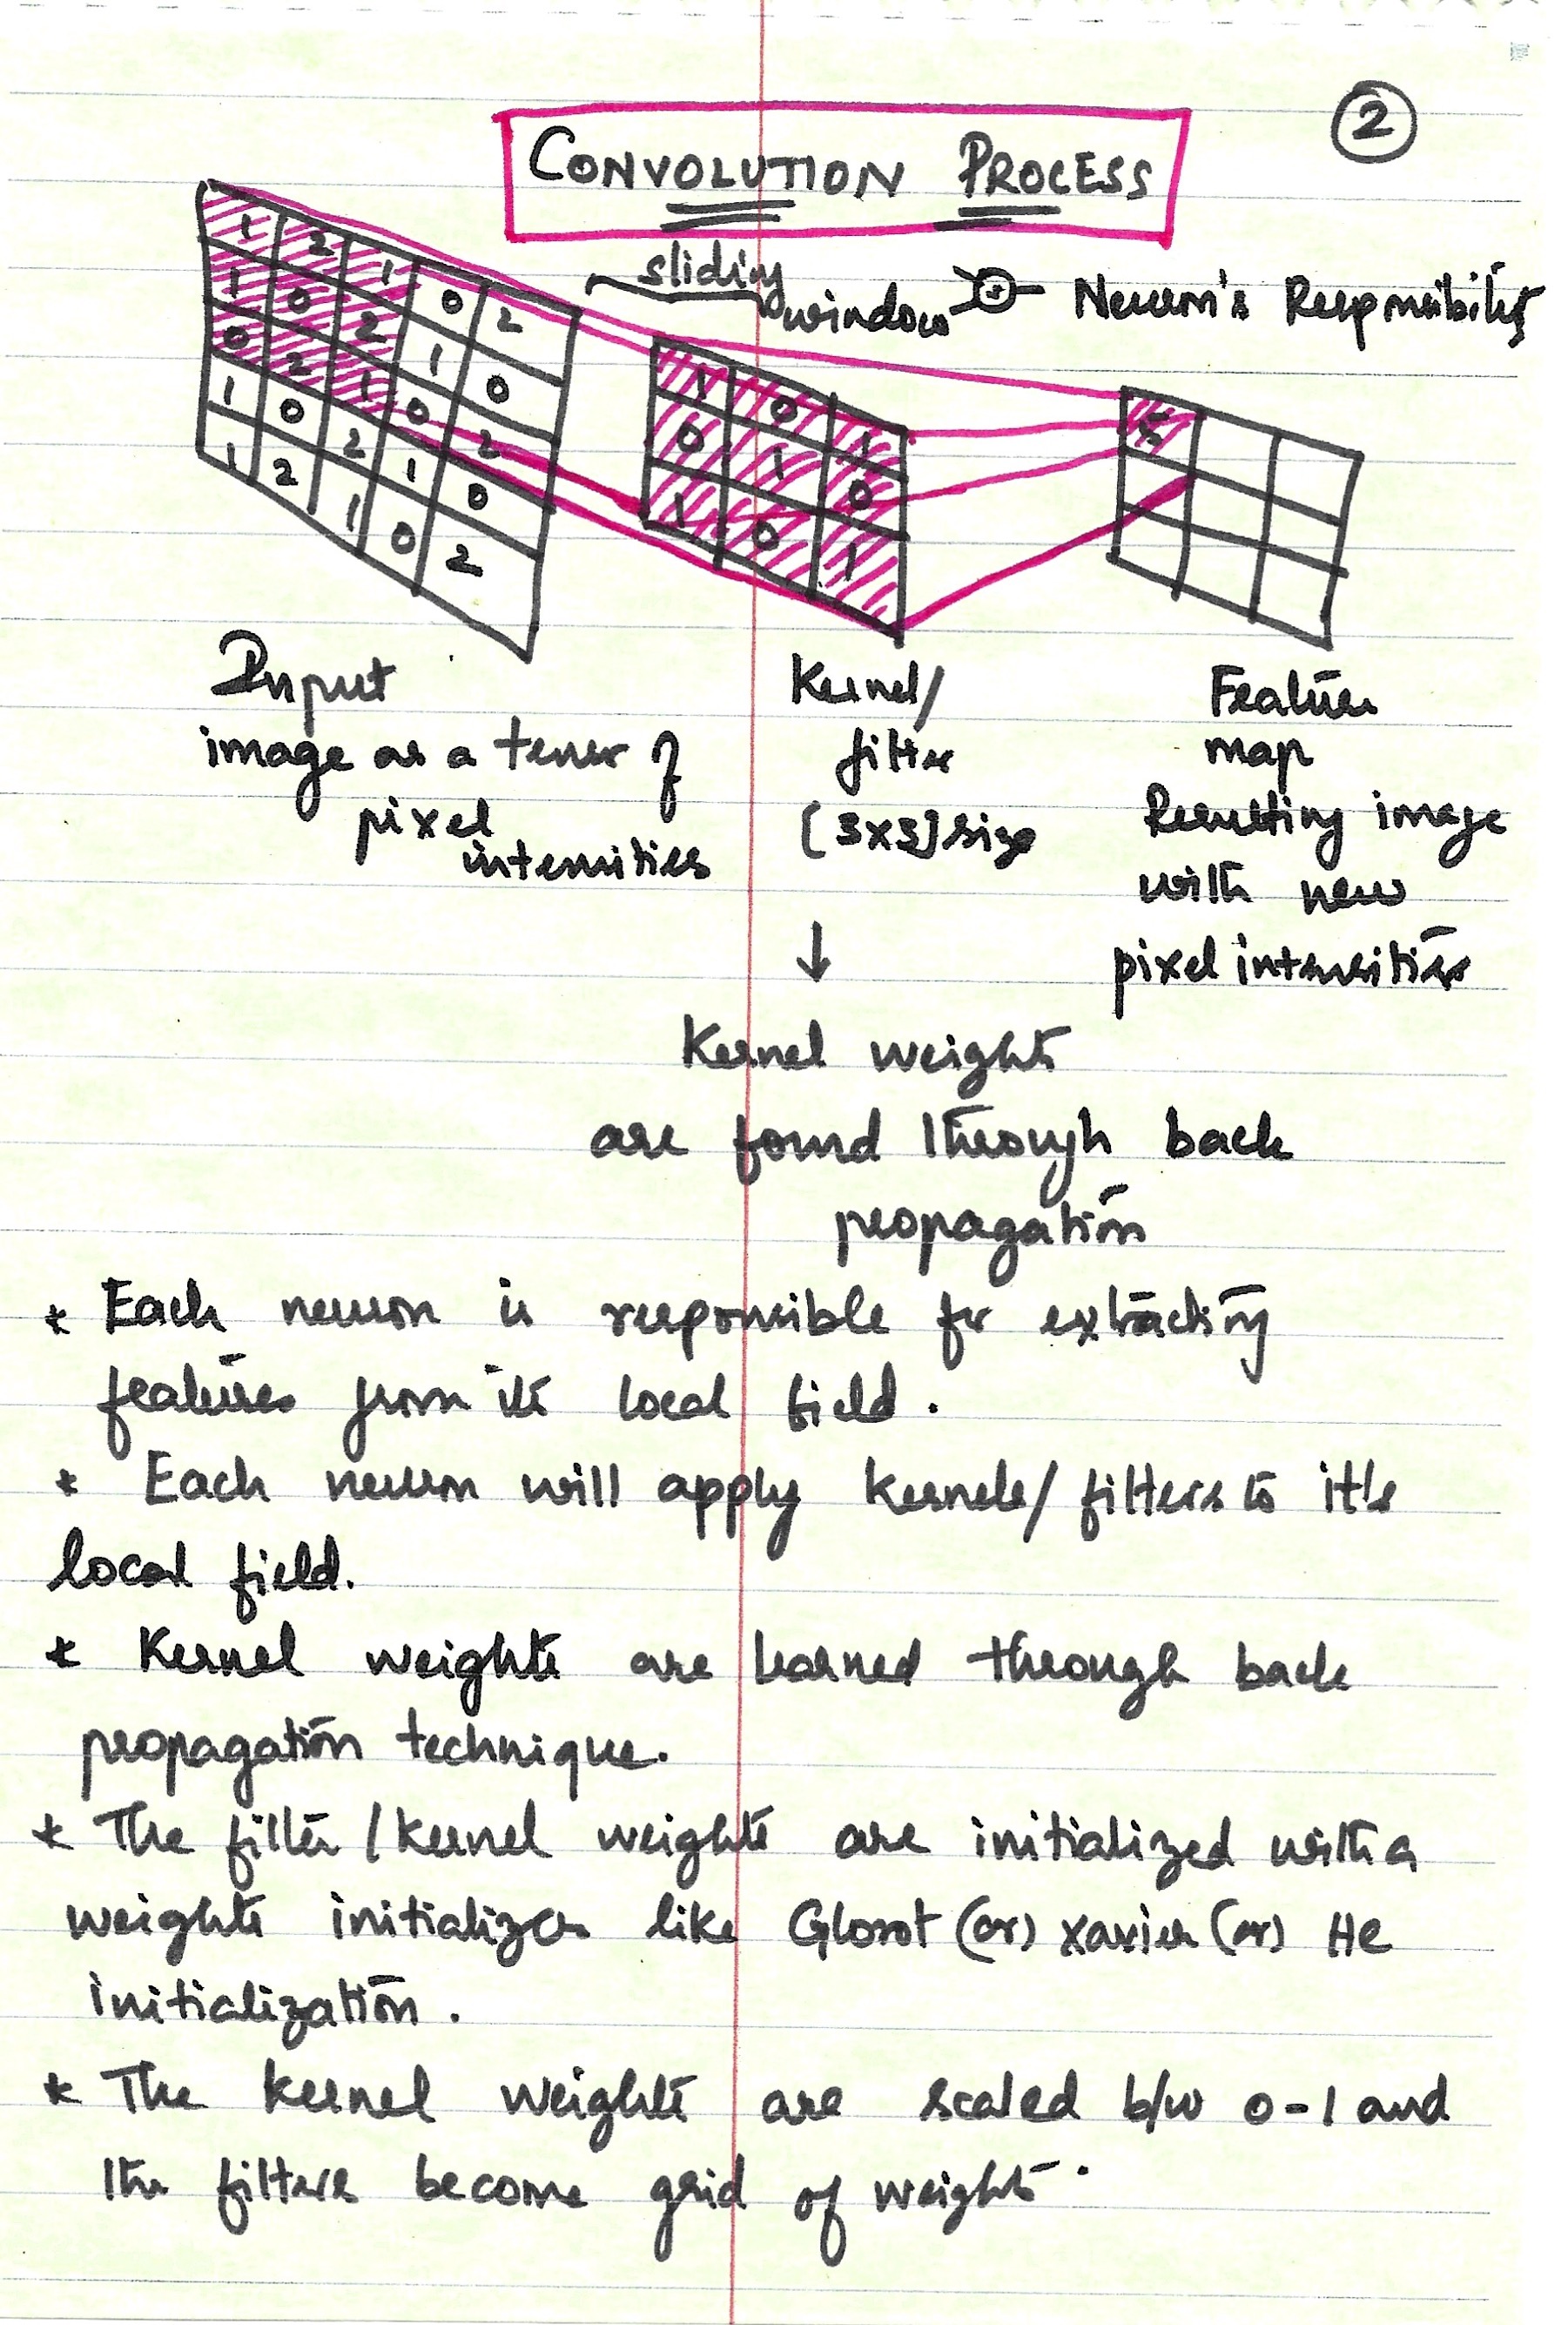 2
CONVOLUTION PROCESS
sliding
window Neuron's Responsibility
1 2 1 0 2
1 0 2 1 0
0 2 1 0 2
1 0 2 1 0
1 2 1 0 2
1 0 1
0 1 0
1 0 1
Input
image as a tensor of
pixel
intensities
Kernel/
filter
[3x3] size
Feature
map
Resulting image
with new
pixel intensities
↓
Kernel weights
are found through back
propagation
* Each neuron is responsible for extracting
features from its local field.
* Each neuron will apply kernels/filters to it's
local field.
* Kernel weights are learned through back
propagation technique.
* The filter/kernel weights are initialized with a
weights initializer like Glorot (or) Xavier (or) He
initialization.
* The kernel weights are scaled b/w 0-1 and
the filters become grid of weights.